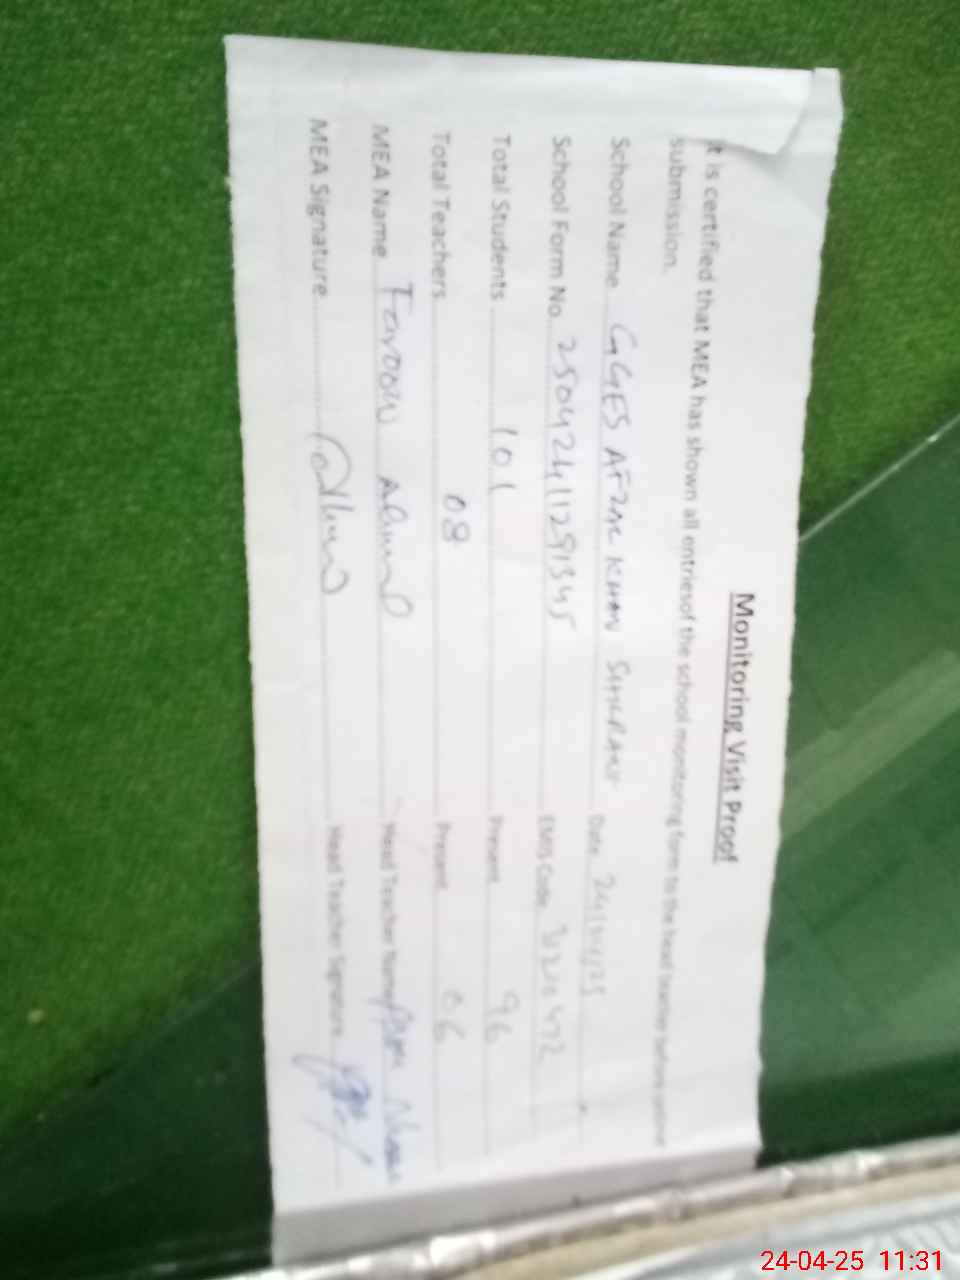 Monitoring Visit Proof
It is certified that MEA has shown all entriesof the school monitoring form to the head teacher before
submission.
School Name GGES AFZAL KHAN Date 24/04/25
School Form No. 25042411291345 EMIS Code
Total Students 101 Present 96
Total Teachers 08 Present 06
MEA Name Farooq Ahmed Head Teacher Name
MEA Signature Head Teacher Signature
24-04-25 11:31